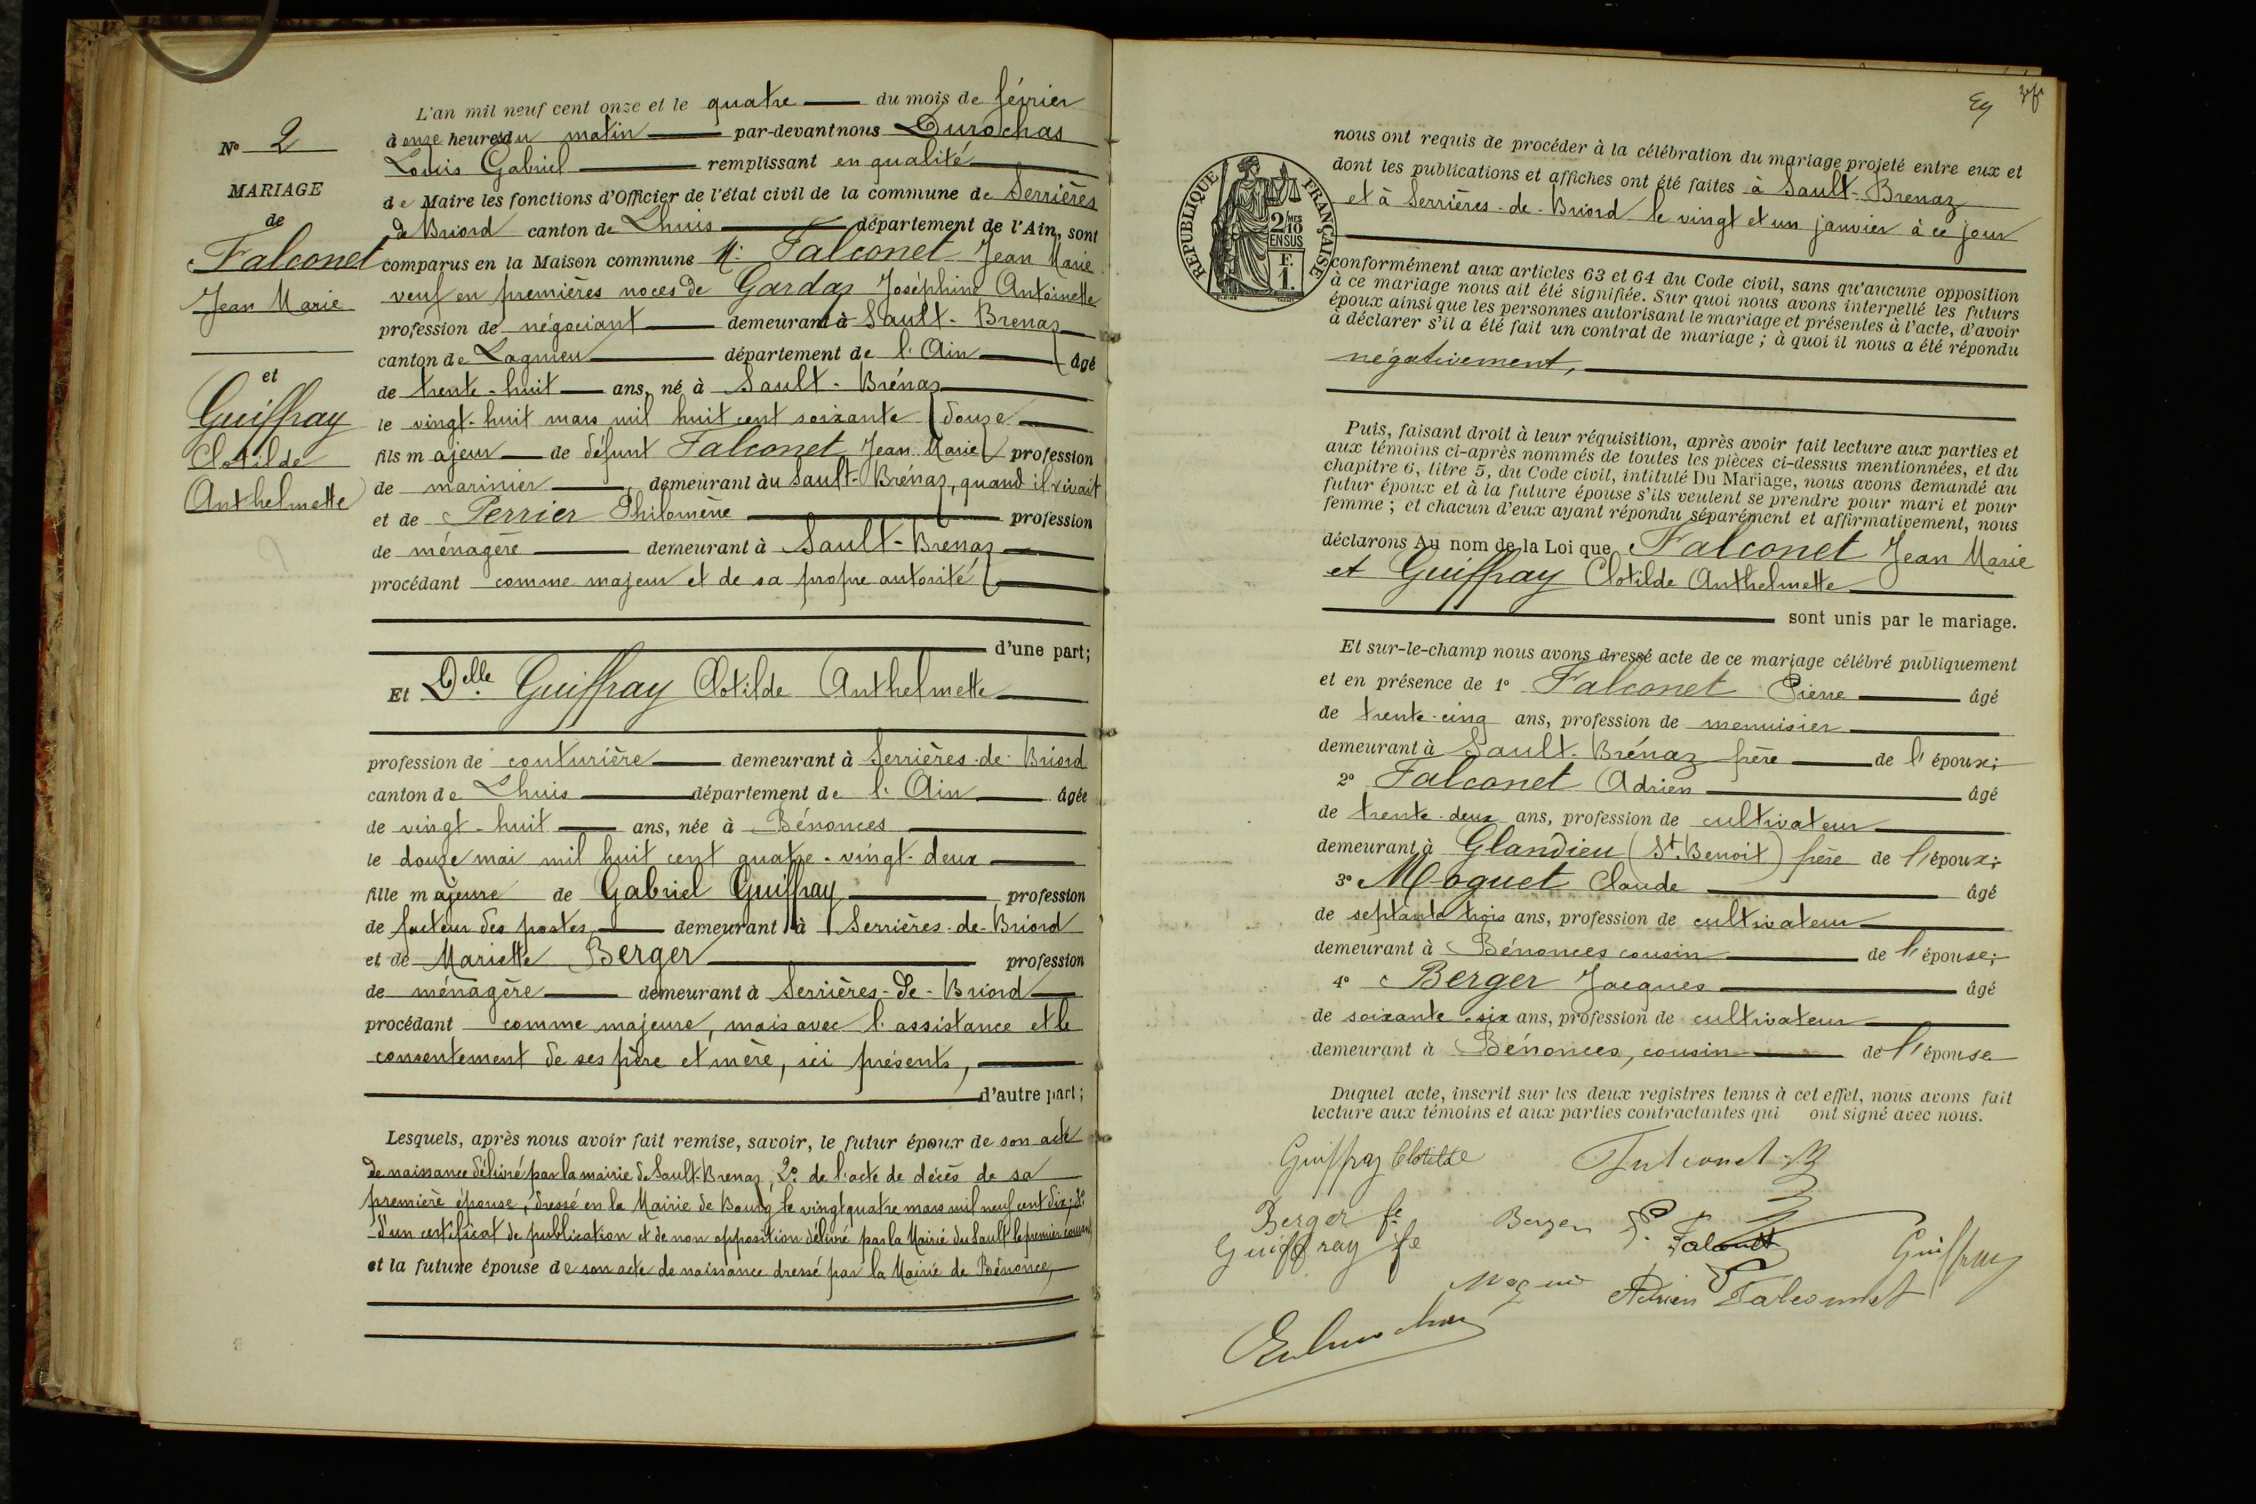 N° 2
MARIAGE
de
Falconet
Jean Marie
et
Guiffray
Clotilde
Anthelmette
L'an mil neuf cent onze et le quatre du mois de février
à onze heures du matin par-devant nous Durochas
Louis Gabriel remplissant en qualité
de Maire les fonctions d'Officier de l'état civil de la commune de Serrières
de Briord canton de Lhuis département de l'Ain, sont
comparus en la Maison commune M. Falconet Jean Marie
veuf en premières noces de Gardas Joséphine Antoinette
profession de négociant demeurant à Sault-Brenaz
canton de Lagnieu département de l'Ain âgé
de trente-huit ans, né à Sault-Brénaz
le vingt-huit mars mil huit cent soixante douze
fils majeur de défunt Falconet Jean Marie profession
de marinier demeurant au Sault-Brénaz, quand il vivait
et de Perrier Philomène profession
de ménagère demeurant à Sault-Brenaz
procédant comme majeur et de sa propre autorité
d'une part;
Et Delle Guiffray Clotilde Anthelmette
profession de couturière demeurant à Serrières-de-Briord
canton de Lhuis département de l'Ain âgée
de vingt-huit ans, née à Bénonces
le douze mai mil huit cent quatre-vingt-deux
fille majeure de Gabriel Guiffray profession
de facteur des postes demeurant à Serrières-de-Briord
et de Mariette Berger profession
de ménagère demeurant à Serrières-de-Briord
procédant comme majeure, mais avec l'assistance et le
consentement de ses père et mère, ici présents,
d'autre part;
Lesquels, après nous avoir fait remise, savoir, le futur époux de son acte
de naissance délivré par la mairie de Sault-Brenaz, 2° de l'acte de décès de sa
première épouse, dressé en la Mairie de Bourg le vingt quatre mars mil neuf cent dix; 3°
d'un certificat de publication et de non opposition délivré par la Mairie du Sault le premier courant
et la future épouse de son acte de naissance dressé par la Mairie de Bénonce,
RÉPUBLIQUE FRANÇAISE
2/10 MES
EN SUS
F.
1.
nous ont requis de procéder à la célébration du mariage projeté entre eux et
dont les publications et affiches ont été faites à Sault-Brenaz
et à Serrières-de-Briord le vingt et un janvier à ce jour
conformément aux articles 63 et 64 du Code civil, sans qu'aucune opposition
à ce mariage nous ait été signifiée. Sur quoi nous avons interpellé les futurs
époux ainsi que les personnes autorisant le mariage et présentes à l'acte, d'avoir
à déclarer s'il a été fait un contrat de mariage; à quoi il nous a été répondu
négativement,
Puis, faisant droit à leur réquisition, après avoir fait lecture aux parties et
aux témoins ci-après nommés de toutes les pièces ci-dessus mentionnées, et du
chapitre 6, titre 5, du Code civil, intitulé Du Mariage, nous avons demandé au
futur époux et à la future épouse s'ils veulent se prendre pour mari et pour
femme; et chacun d'eux ayant répondu séparément et affirmativement, nous
déclarons Au nom de la Loi que Falconet Jean Marie
et Guiffray Clotilde Anthelmette
sont unis par le mariage.
Et sur-le-champ nous avons dressé acte de ce mariage célébré publiquement
et en présence de 1° Falconet Pierre âgé
de trente-cinq ans, profession de menuisier
demeurant à Sault-Brénaz frère de l'époux;
2° Falconet Adrien âgé
de trente-deux ans, profession de cultivateur
demeurant à Glandieu (St. Benoit) frère de l'époux;
3° Moguet Claude âgé
de septante trois ans, profession de cultivateur
demeurant à Bénonces cousin de l'épouse;
4° Berger Jacques âgé
de soixante-six ans, profession de cultivateur
demeurant à Bénonces, cousin de l'épouse
Duquel acte, inscrit sur les deux registres tenus à cet effet, nous avons fait
lecture aux témoins et aux parties contractantes qui ont signé avec nous.
Guiffray Clotilde
Falconet
Berger fe
Guiffray fe
Berger
Falconet
Guiffray
Moguet
Adrien Falconnet